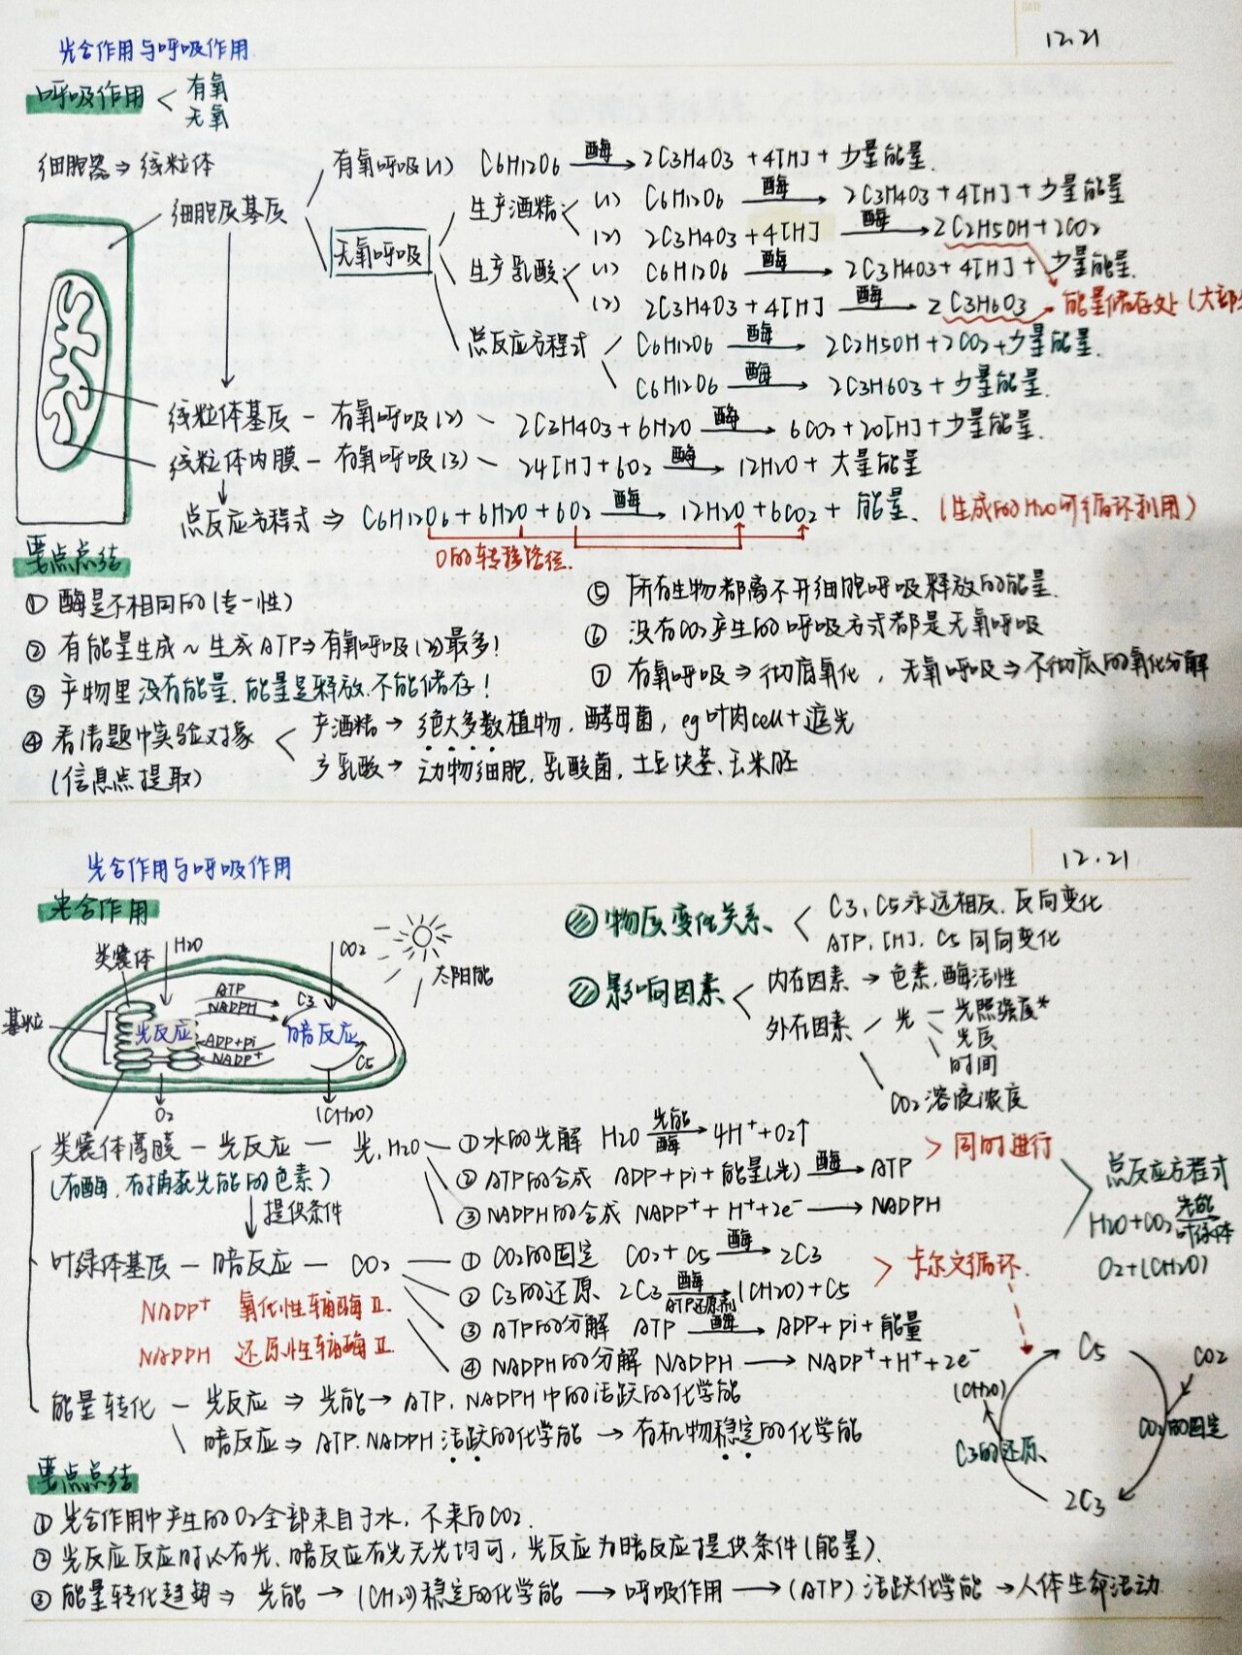 光合作用与呼吸作用
12.21
呼吸作用 < 有氧
无氧
细胞器⇒线粒体
有氧呼吸(1) C6H12O6 —酶→ 2C3H4O3 + 4[H] + 少量能量.
细胞质基质
生产酒精 < (1) C6H12O6 —酶→ 2C3H4O3 + 4[H] + 少量能量
(2) 2C3H4O3 + 4[H] —酶→ 2C2H5OH + 2CO2
无氧呼吸
生产乳酸 < (1) C6H12O6 —酶→ 2C3H4O3 + 4[H] + 少量能量.
(2) 2C3H4O3 + 4[H] —酶→ 2C3H6O3
能量储存处(大部
总反应方程式 C6H12O6 —酶→ 2C2H5OH + 2CO2 + 少量能量.
C6H12O6 —酶→ 2C3H6O3 + 少量能量.
线粒体基质 – 有氧呼吸(2) 2C3H4O3 + 6H2O —酶→ 6CO2 + 20[H] + 少量能量.
线粒体内膜 – 有氧呼吸(3) 24[H] + 6O2 —酶→ 12H2O + 大量能量
总反应方程式 ⇒ C6H12O6 + 6H2O + 6O2 —酶→ 12H2O + 6CO2 + 能量. (生成的H2O可循环利用)
O的转移路径.
要点总结
① 酶是不相同的(专一性)
② 有能量生成~生成ATP⇒有氧呼吸(3)最多!
③ 产物里没有能量.能量是释放.不能储存!
④ 看清题中实验对象 < 产酒精 → 绝大多数植物.酵母菌, eg叶肉cell+遮光
(信息点提取) 产乳酸 → 动物细胞.乳酸菌.土豆块茎.玉米胚
⑤ 所有生物都离不开细胞呼吸释放的能量.
⑥ 没有CO2产生的呼吸方式都是无氧呼吸
⑦ 有氧呼吸⇒彻底氧化, 无氧呼吸⇒不彻底的氧化分解
光合作用与呼吸作用
12.21
光合作用
类囊体
H2O
CO2
太阳能
基粒
ATP
NADPH
C3
光反应
暗反应
ADP+pi
NADP+
C5
O2
(CH2O)
物质变化关系. < C3、C5永远相反.反向变化
ATP.[H].C5同向变化
影响因素 < 内在因素 → 色素.酶活性
外在因素 光 – 光照强度*
光质
时间
CO2溶液浓度
类囊体薄膜 – 光反应 – 光.H2O ① 水的光解 H2O —光能 酶→ 4H+ + O2↑
(有酶.有捕获光能的色素)
② ATP的合成 ADP + pi + 能量(光) —酶→ ATP
③ NADPH的合成 NADP+ + H+ + 2e- → NADPH
> 同时进行
提供条件
总反应方程式
H2O + CO2 —光能 叶绿体→
O2 + (CH2O)
叶绿体基质 – 暗反应 – CO2 ① CO2的固定 CO2 + C5 —酶→ 2C3
② C3的还原. 2C3 —酶 ATP还原剂→ (CH2O) + C5
③ ATP的分解 ATP —酶→ ADP + pi + 能量
④ NADPH的分解 NADPH → NADP+ + H+ + 2e-
> 卡尔文循环.
NADP+ 氧化性辅酶Ⅱ.
NADPH 还原性辅酶Ⅱ.
能量转化 – 光反应 ⇒ 光能 → ATP.NADPH中的活跃的化学能
暗反应 ⇒ ATP.NADPH活跃的化学能 → 有机物稳定的化学能
C5
CO2
(CH2O)
CO2的固定
C3的还原.
2C3
要点总结
① 光合作用中产生的O2全部来自于水.不来自CO2.
② 光反应反应时必有光.暗反应有光无光均可,光反应为暗反应提供条件(能量).
③ 能量转化趋势 ⇒ 光能 → (CH2O)稳定的化学能 → 呼吸作用 → (ATP)活跃化学能 → 人体生命活动